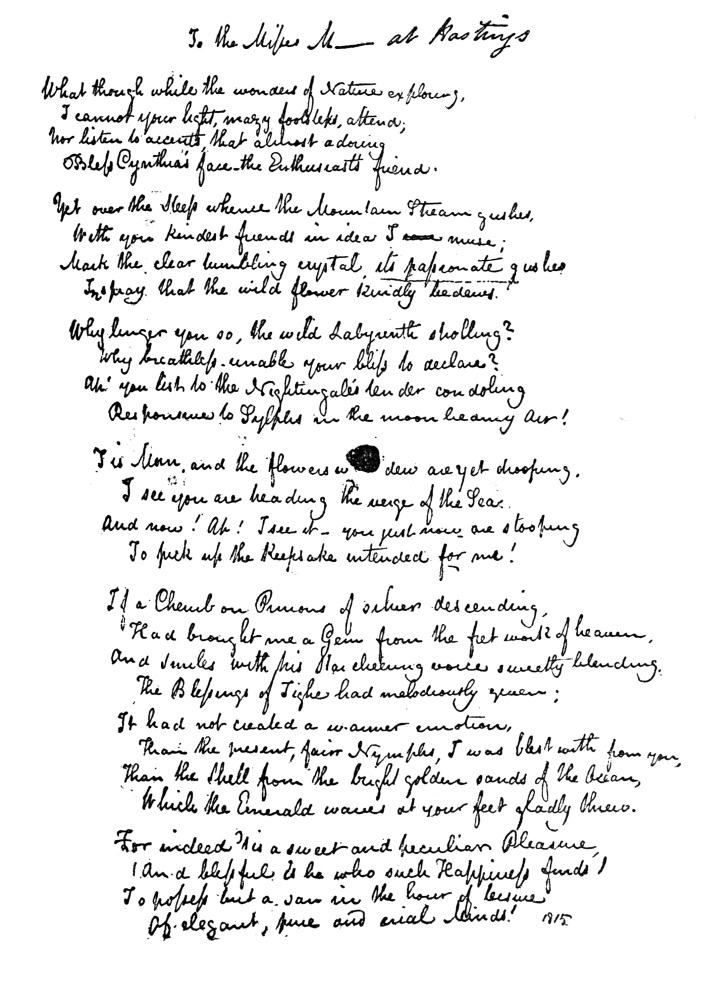 To the Misses M— at Hastings
What though while the wonders of Nature exploring,
I cannot your light, mazy footsteps, attend;
Nor listen to accents, that almost adoring
Bless Cynthia's face—the Enthusiast's friend.
Yet over the Steep whence the Mountain Stream gushes,
With you kindest friends in idea I muse;
Mark the clear tumbling crystal, its passionate gushes
In spray that the wild flower kindly bedews.
Why linger you so, the wild Labyrinth strolling?
Why breathless—unable your bliss to declare?
Ah! you list to the Nightingale's tender condoling
Responsive to Sylphs in the moon beamy Air!
T is Morn, and the flowers w dew are yet drooping.
I see you are treading the verge of the Sea.
And now! Ah! I see it—you just now are stooping
To pick up the Keepsake intended for me!
If a Cherub on Pinions of silver descending,
Had brought me a Gem from the fret work of heaven,
And smiles with his Star cheering voice sweetly blending,
The Blessings of Tighe had melodiously given;
It had not created a warmer emotion,
Than the present, fair Nymphs, I was blest with from you,
Than the Shell from the bright golden sands of the Ocean,
Which the Emerald waves at your feet gladly threw.
For indeed 'tis a sweet and peculiar Pleasure,
(And blissful is he who such Happiness finds)
To possess but a span in the hour of leisure
Of elegant, pure and erial Minds! 1815